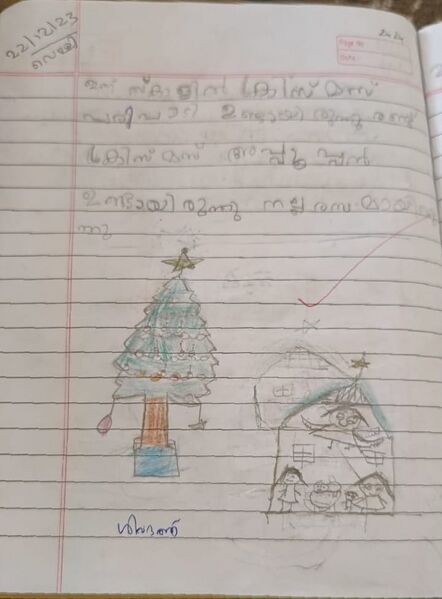 22/12/23
വെള്ളി
Page No
Date
ഇന്ന് സ്കൂളിൽ ക്രിസ്മസ്
പരിപാടി ഉണ്ടായിരുന്നു രണ്ട്
ക്രിസ്മസ് അപ്പൂപ്പൻ
ഉണ്ടായിരുന്നു നല്ല രസമായിരു
ന്നു